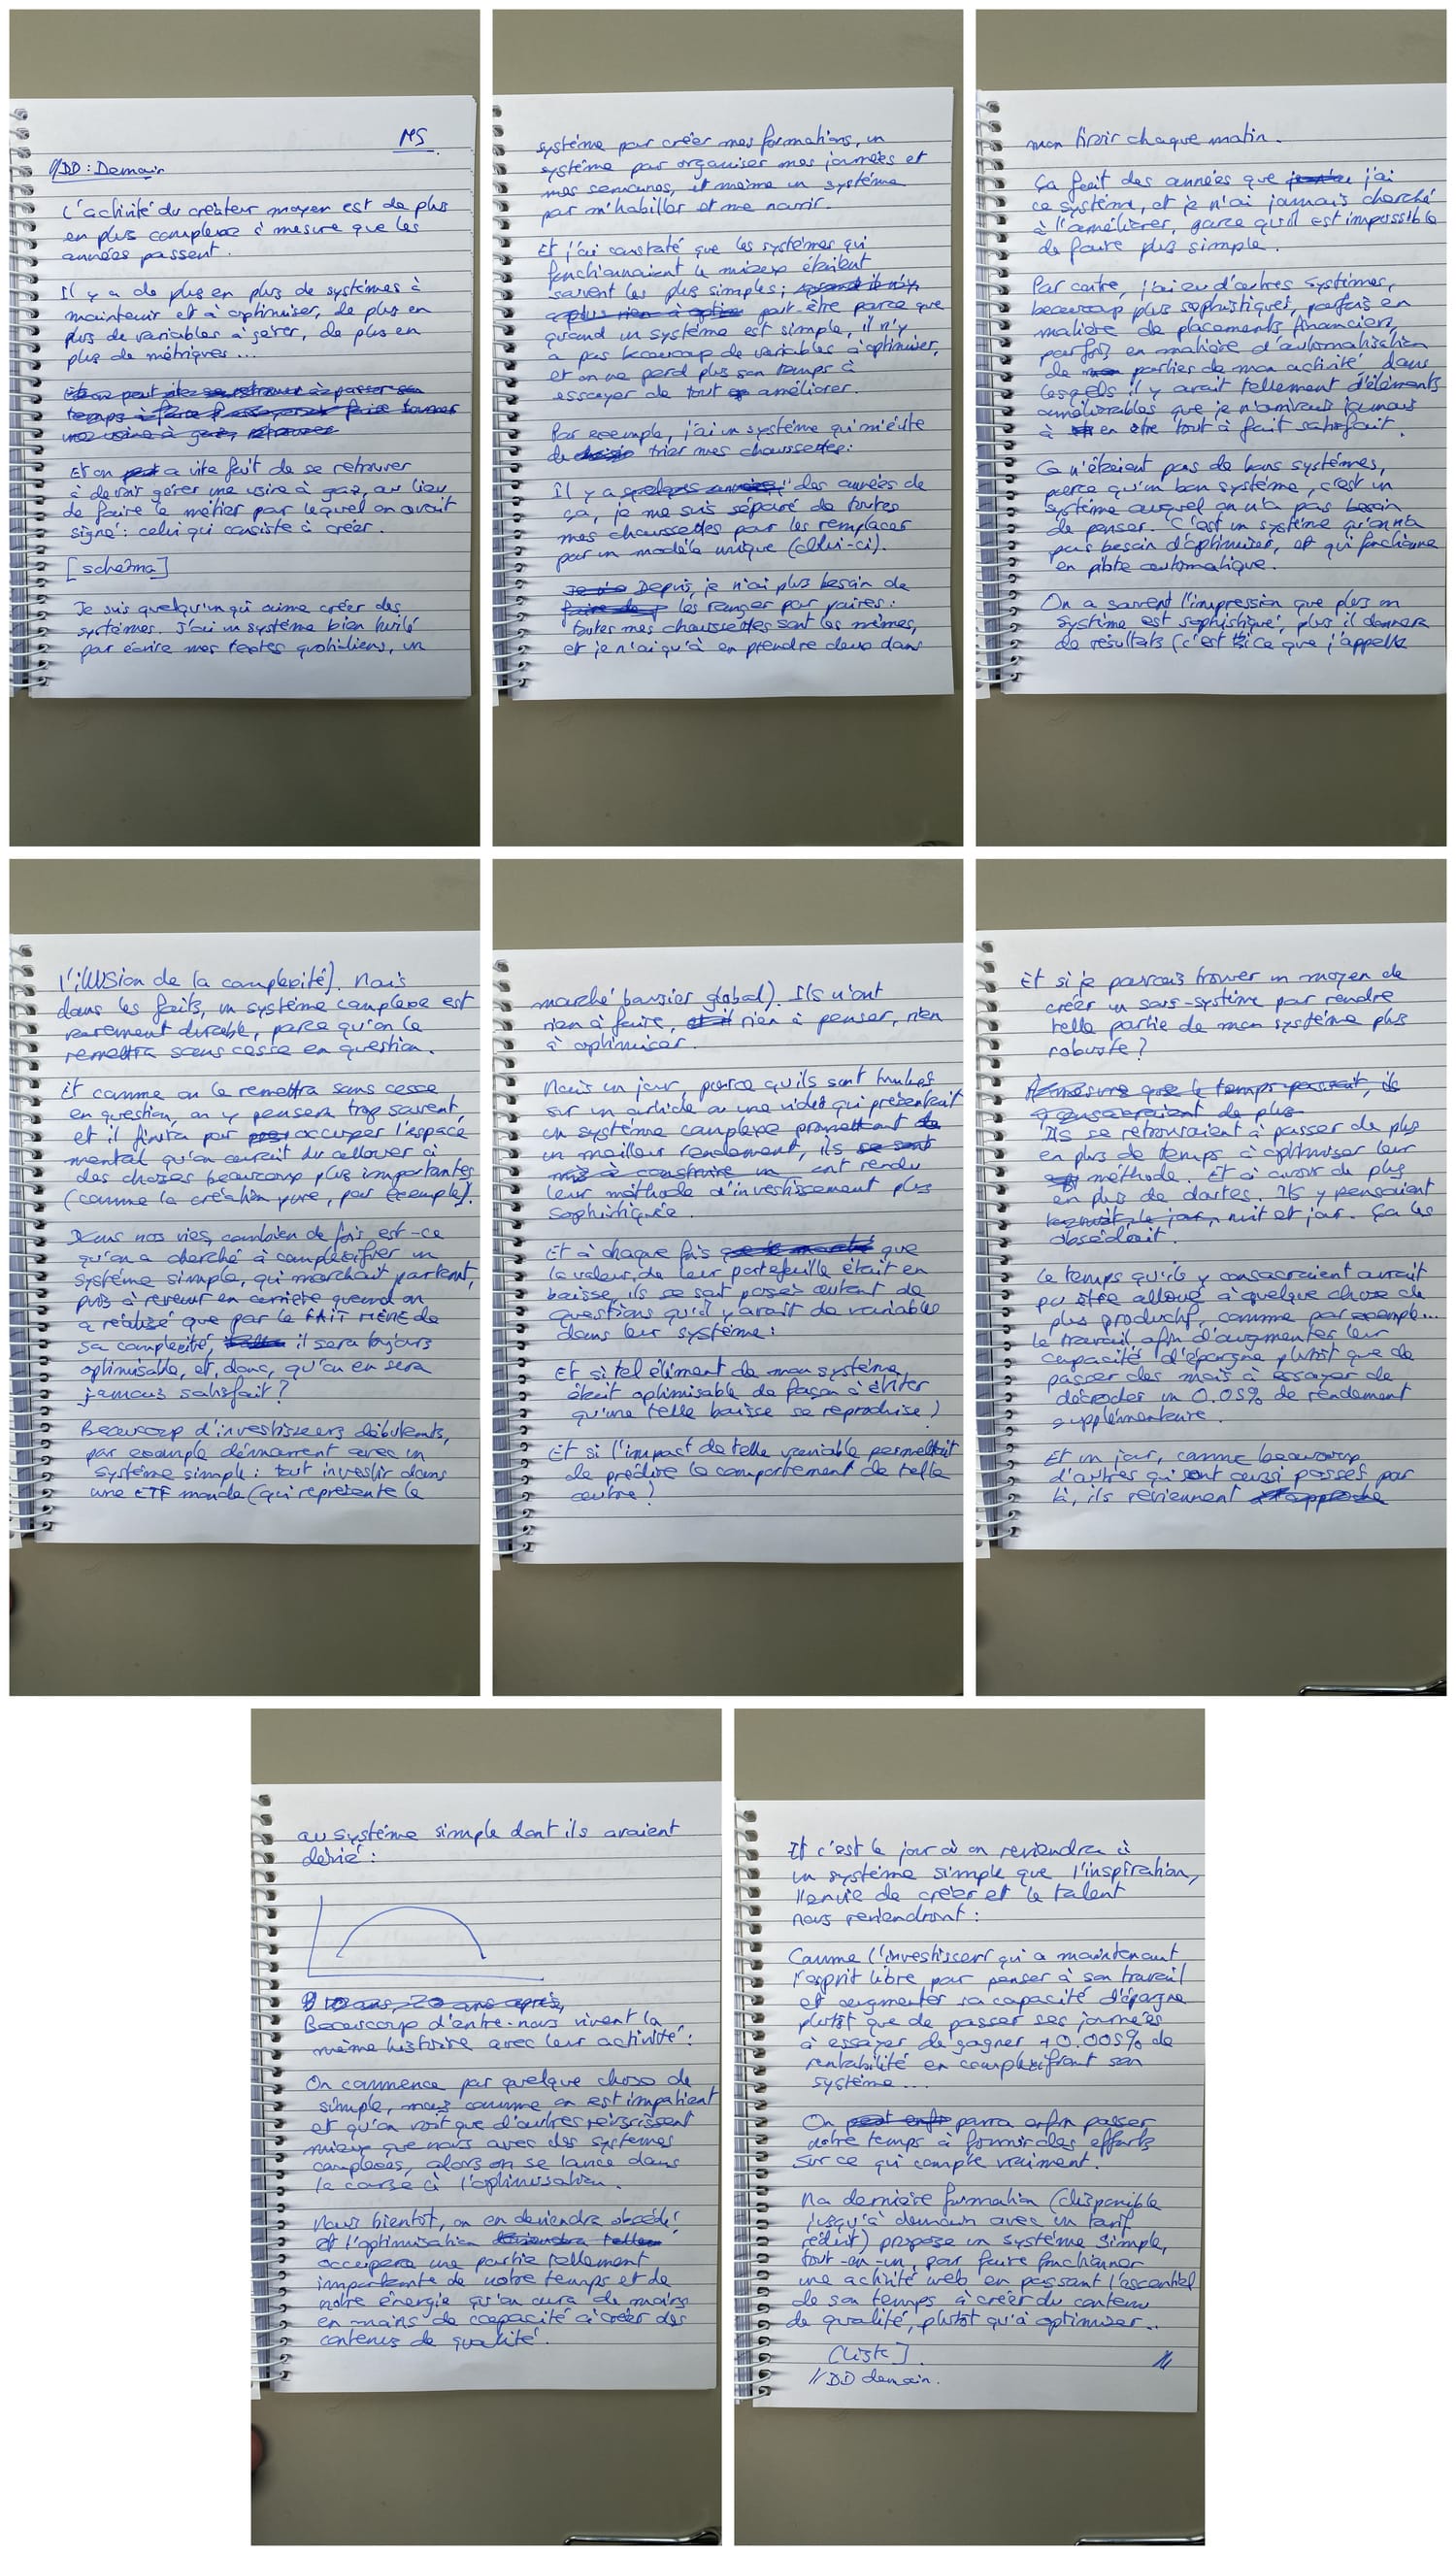 MS
//DD : Demain
L'activité du créateur moyen est de plus
en plus complexe à mesure que les
années passent.
Il y a de plus en plus de systèmes à
maintenir et à optimiser, de plus en
plus de variables à gérer, de plus en
plus de métriques ...
Et on a vite fait de se retrouver
à devoir gérer une usine à gaz, au lieu
de faire le métier pour lequel on avait
signé : celui qui consiste à créer.
[schéma]
Je suis quelqu'un qui aime créer des
systèmes. J'ai un système bien huilé
pour écrire mes textes quotidiens, un
système pour créer mes formations, un
système pour organiser mes journées et
mes semaines, et même un système
pour m'habiller et me nourrir.
Et j'ai constaté que les systèmes qui
fonctionnaient le mieux étaient
souvent les plus simples ;
peut-être parce que
quand un système est simple, il n'y
a pas beaucoup de variables à optimiser,
et on ne perd plus son temps à
essayer de tout améliorer.
Par exemple, j'ai un système qui m'évite
de trier mes chaussettes :
Il y a des années de
ça, je me suis séparé de toutes
mes chaussettes pour les remplacer
par un modèle unique (celui-ci).
Depuis, je n'ai plus besoin de
les ranger par paires :
toutes mes chaussettes sont les mêmes,
et je n'ai qu'à en prendre deux dans
mon tiroir chaque matin.
Ça fait des années que j'ai
ce système, et je n'ai jamais cherché
à l'améliorer, parce qu'il est impossible
de faire plus simple.
Par contre, j'ai eu d'autres systèmes,
beaucoup plus sophistiqués, parfois en
matière de placements financiers,
parfois en matière d'automatisation
de parties de mon activité dans
lesquels il y avait tellement d'éléments
améliorables que je n'arrivais jamais
à en être tout à fait satisfait.
Ce n'étaient pas de bons systèmes,
parce qu'un bon système, c'est un
système auquel on n'a pas besoin
de penser. C'est un système qu'on n'a
pas besoin d'optimiser, et qui fonctionne
en pilote automatique.
On a souvent l'impression que plus un
système est sophistiqué, plus il donnera
de résultats (c'est ce que j'appelle
l'illusion de la complexité). Mais
dans les faits, un système complexe est
rarement durable, parce qu'on le
remettra sans cesse en question.
Et comme on le remettra sans cesse
en question, on y pensera trop souvent,
et il finira par occuper l'espace
mental qu'on aurait du allouer à
des choses beaucoup plus importantes
(comme la création pure, par exemple).
Dans nos vies, combien de fois est-ce
qu'on a cherché à complexifier un
système simple, qui marchait pourtant,
puis à revenir en arrière quand on
a réalisé que par le FAIT MÊME de
sa complexité, il sera toujours
optimisable, et, donc, qu'on en sera
jamais satisfait ?
Beaucoup d'investisseurs débutants,
par exemple démarrent avec un
système simple : tout investir dans
une ETF monde (qui représente le
marché boursier global). Ils n'ont
rien à faire, rien à penser, rien
à optimiser.
Mais un jour, parce qu'ils sont tombés
sur un article ou une vidéo qui présentait
un système complexe promettant
un meilleur rendement, ils
ont rendu
leur méthode d'investissement plus
sophistiquée.
Et à chaque fois que
la valeur de leur portefeuille était en
baisse, ils se sont posés autant de
questions qu'il y avait de variable
dans leur système :
Et si tel élément de mon système
était optimisable de façon à éviter
qu'une telle baisse se reproduise ?
Et si l'impact de telle variable permettait
de prédire le comportement de telle
autre ?
Et si je pouvais trouver un moyen de
créer un sous-système pour rendre
telle partie de mon système plus
robuste ?
Ils se retrouvaient à passer de plus
en plus de temps à optimiser leur
méthode. Et à avoir de plus
en plus de doutes. Ils y pensaient
nuit et jour. Ça les
obsédait.
Le temps qu'ils y consacraient aurait
pu être alloué à quelque chose de
plus productif, comme par exemple...
le travail, afin d'augmenter leur
capacité d'épargne plutôt que de
passer des mois à essayer de
décrocher un 0.05% de rendement
supplémentaire.
Et un jour, comme beaucoup
d'autres qui sont aussi passés par
là, ils reviennent
au système simple dont ils avaient
dévié :
Beaucoup d'entre-nous vivent la
même histoire avec leur activité :
On commence par quelque chose de
simple, mais comme on est impatient
et qu'on voit que d'autres réussissent
mieux que nous avec des systèmes
complexes, alors on se lance dans
la course à l'optimisation.
Mais bientôt, on en deviendra obsédé,
et l'optimisation
occupera une partie tellement
importante de notre temps et de
notre énergie qu'on aura de moins
en moins de capacité à créer des
contenus de qualité.
Et c'est le jour où on reviendra à
un système simple que l'inspiration,
l'envie de créer et le talent
nous reviendront :
Comme l'investisseur qui a maintenant
l'esprit libre pour penser à son travail
et augmenter sa capacité d'épargne
plutôt que de passer ses journées
à essayer de gagner +0.005% de
rentabilité en complexifiant son
système ...
On pourra enfin passer
notre temps à fournir des efforts
sur ce qui compte vraiment.
Ma dernière formation (disponible
jusqu'à demain avec un tarif
réduit) propose un système simple,
tout-en-un, pour faire fonctionner
une activité web en passant l'essentiel
de son temps à créer du contenu
de qualité, plutôt qu'à optimiser...
[Liste].
//DD demain.